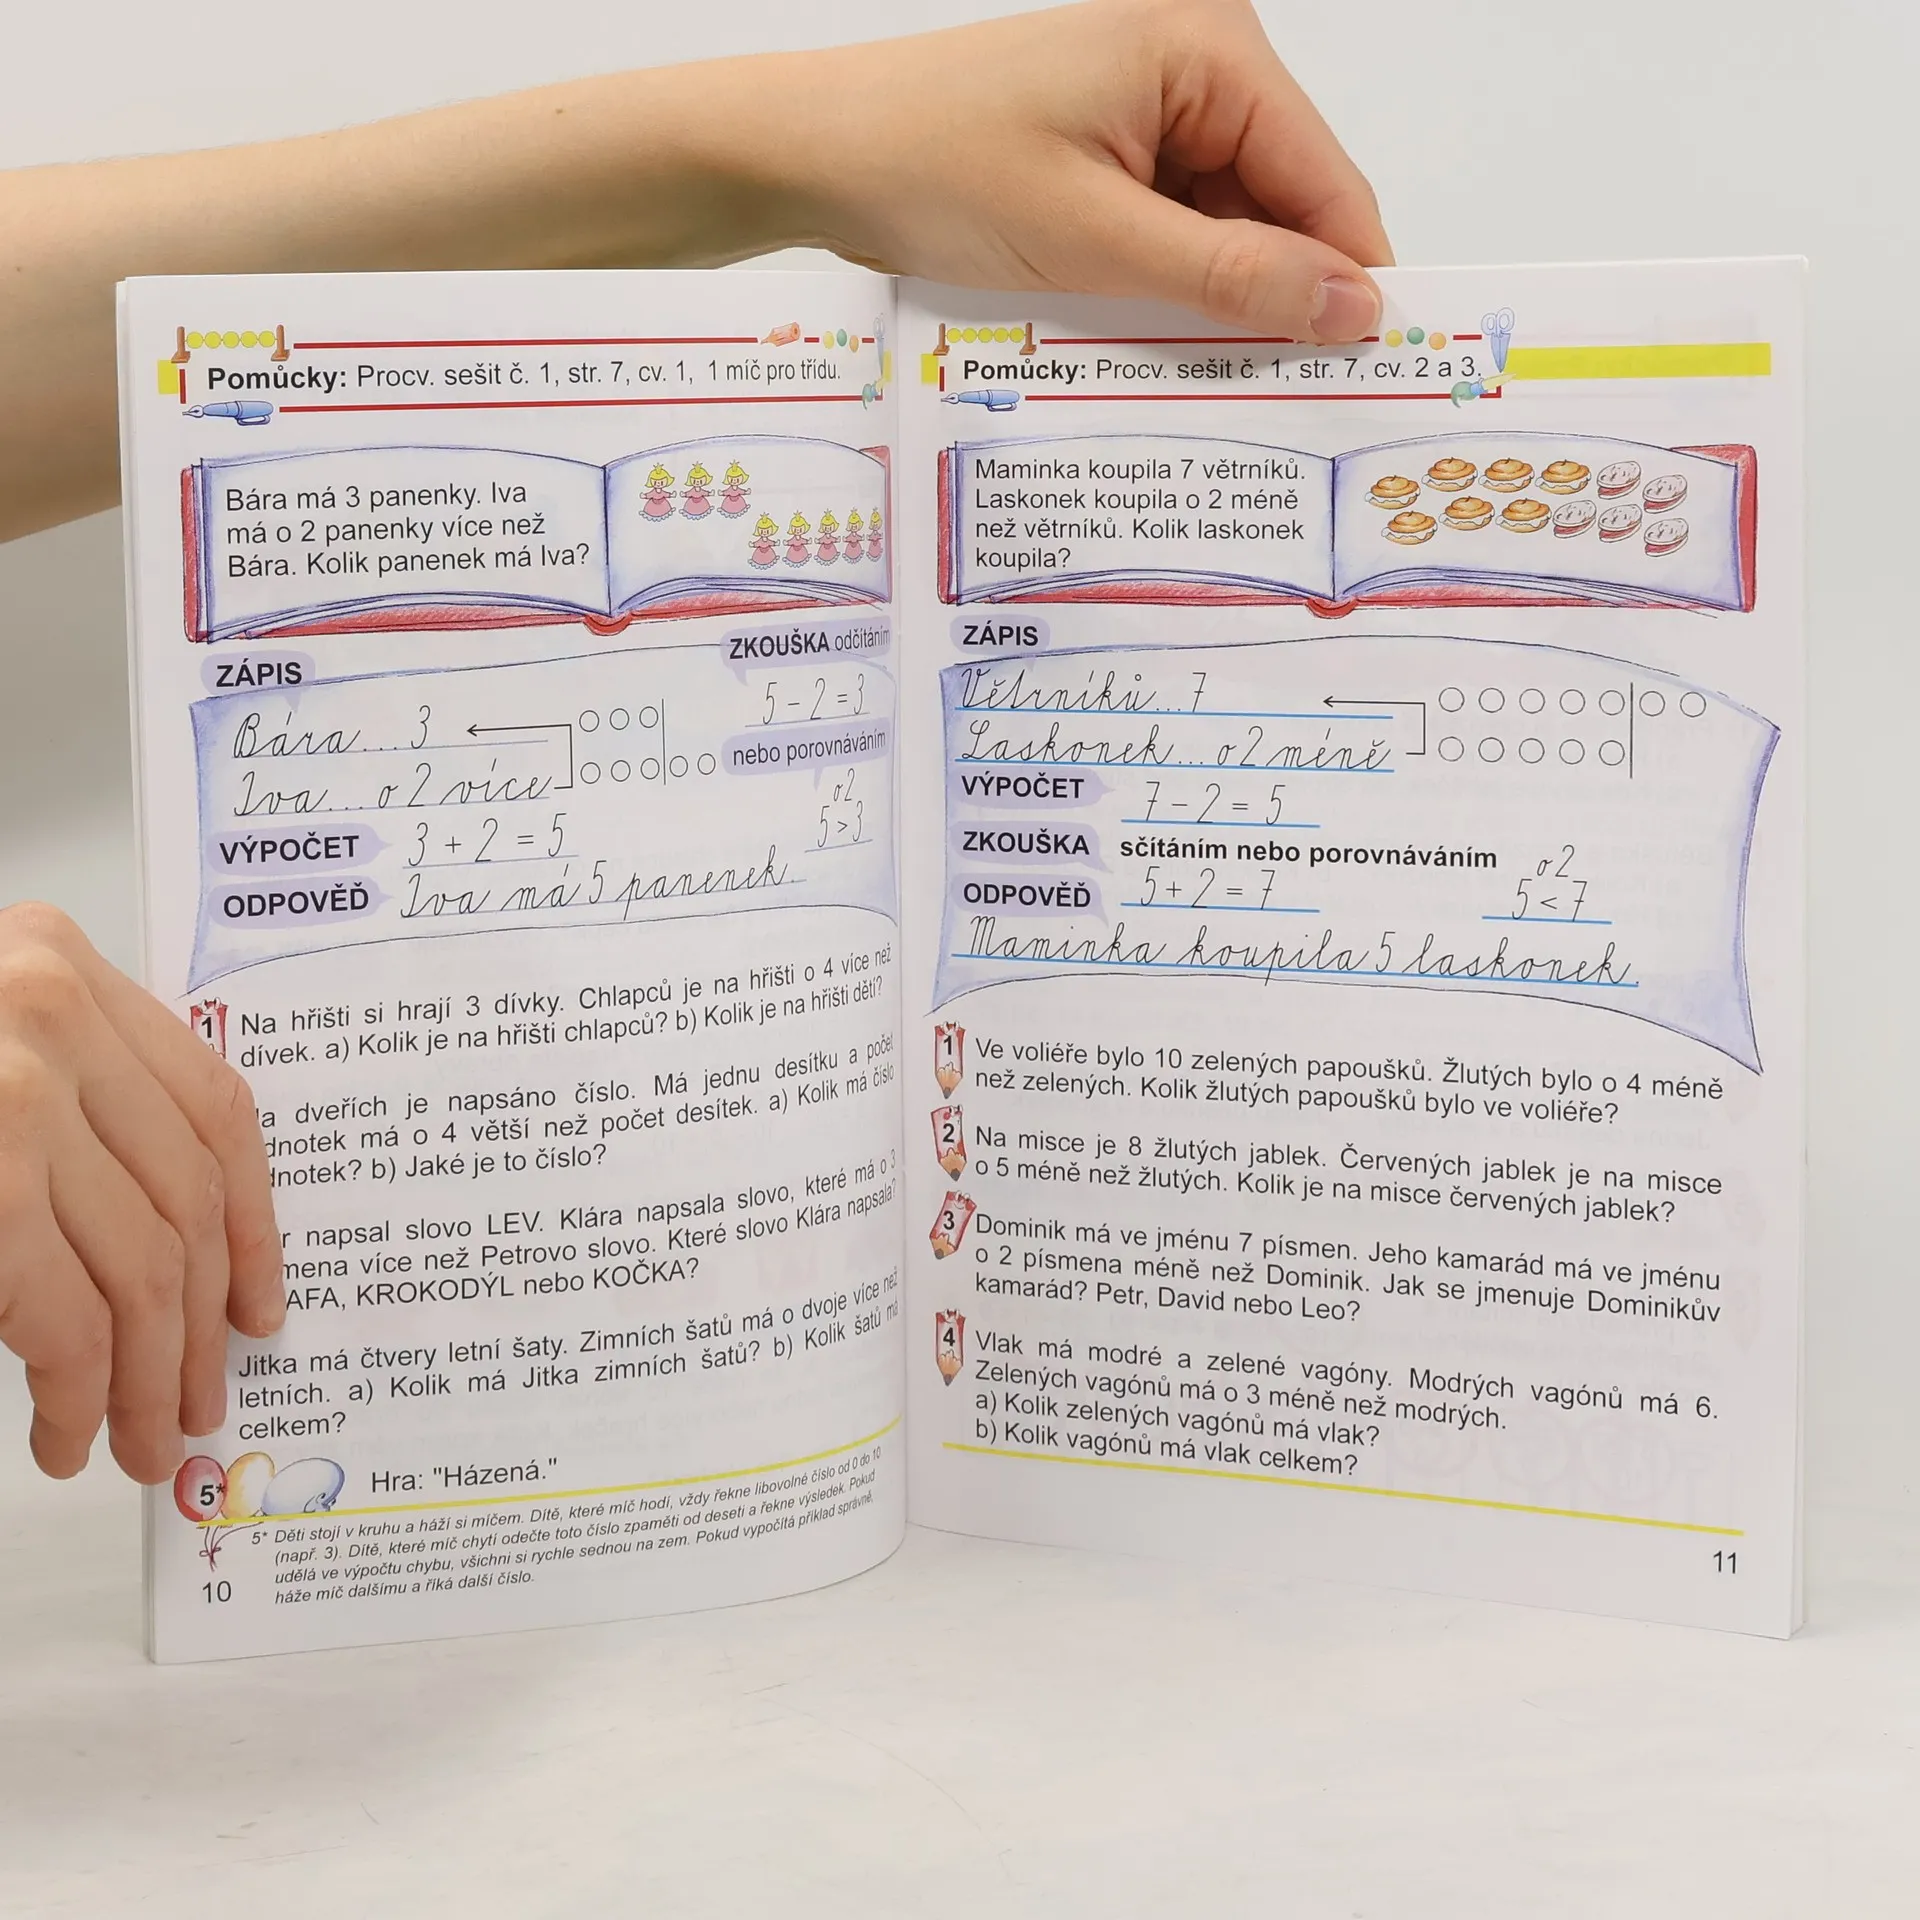 Pomůcky: Procv. sešit č. 1, str. 7, cv. 1, 1 míč pro třídu.
Bára má 3 panenky. Iva
má o 2 panenky více než
Bára. Kolik panenek má Iva?
ZÁPIS
ZKOUŠKA odčítáním
Bára... 3
5 - 2 = 3
Iva... o 2 více
nebo porovnáváním
o 2
5 > 3
VÝPOČET 3 + 2 = 5
ODPOVĚĎ Iva má 5 panenek.
1 Na hřišti si hrají 3 dívky. Chlapců je na hřišti o 4 více než
dívek. a) Kolik je na hřišti chlapců? b) Kolik je na hřišti dětí?
a dveřích je napsáno číslo. Má jednu desítku a počet
dnotek má o 4 větší než počet desítek. a) Kolik má číslo
dnotek? b) Jaké je to číslo?
r napsal slovo LEV. Klára napsala slovo, které má o 3
mena více než Petrovo slovo. Které slovo Klára napsala?
AFA, KROKODÝL nebo KOČKA?
Jitka má čtvery letní šaty. Zimních šatů má o dvoje více než
letních. a) Kolik má Jitka zimních šatů? b) Kolik šatů má
celkem?
5* Hra: "Házená."
5* Děti stojí v kruhu a háží si míčem. Dítě, které míč hodí, vždy řekne libovolné číslo od 0 do 10
(např. 3). Dítě, které míč chytí odečte toto číslo zpaměti od deseti a řekne výsledek. Pokud
udělá ve výpočtu chybu, všichni si rychle sednou na zem. Pokud vypočítá příklad správně,
háže míč dalšímu a říká další číslo.
10
Pomůcky: Procv. sešit č. 1, str. 7, cv. 2 a 3.
Maminka koupila 7 větrníků.
Laskonek koupila o 2 méně
než větrníků. Kolik laskonek
koupila?
ZÁPIS
Větrníků... 7
Laskonek... o 2 méně
VÝPOČET 7 - 2 = 5
ZKOUŠKA sčítáním nebo porovnáváním
5 + 2 = 7
o 2
5 < 7
ODPOVĚĎ
Maminka koupila 5 laskonek.
1 Ve voliéře bylo 10 zelených papoušků. Žlutých bylo o 4 méně
než zelených. Kolik žlutých papoušků bylo ve voliéře?
2 Na misce je 8 žlutých jablek. Červených jablek je na misce
o 5 méně než žlutých. Kolik je na misce červených jablek?
3 Dominik má ve jménu 7 písmen. Jeho kamarád má ve jménu
o 2 písmena méně než Dominik. Jak se jmenuje Dominikův
kamarád? Petr, David nebo Leo?
4 Vlak má modré a zelené vagóny. Modrých vagónů má 6.
Zelených vagónů má o 3 méně než modrých.
a) Kolik zelených vagónů má vlak?
b) Kolik vagónů má vlak celkem?
11